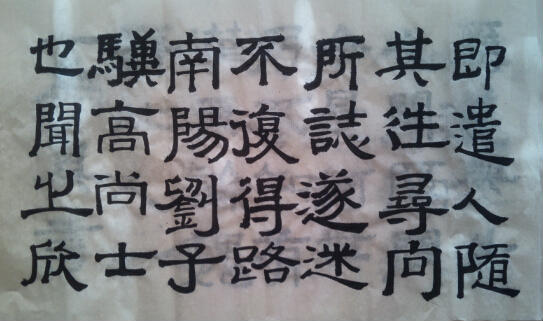 即遣人隨
其往尋向
所誌遂迷
不復得路
南陽劉子
驥高尚士
也聞之欣